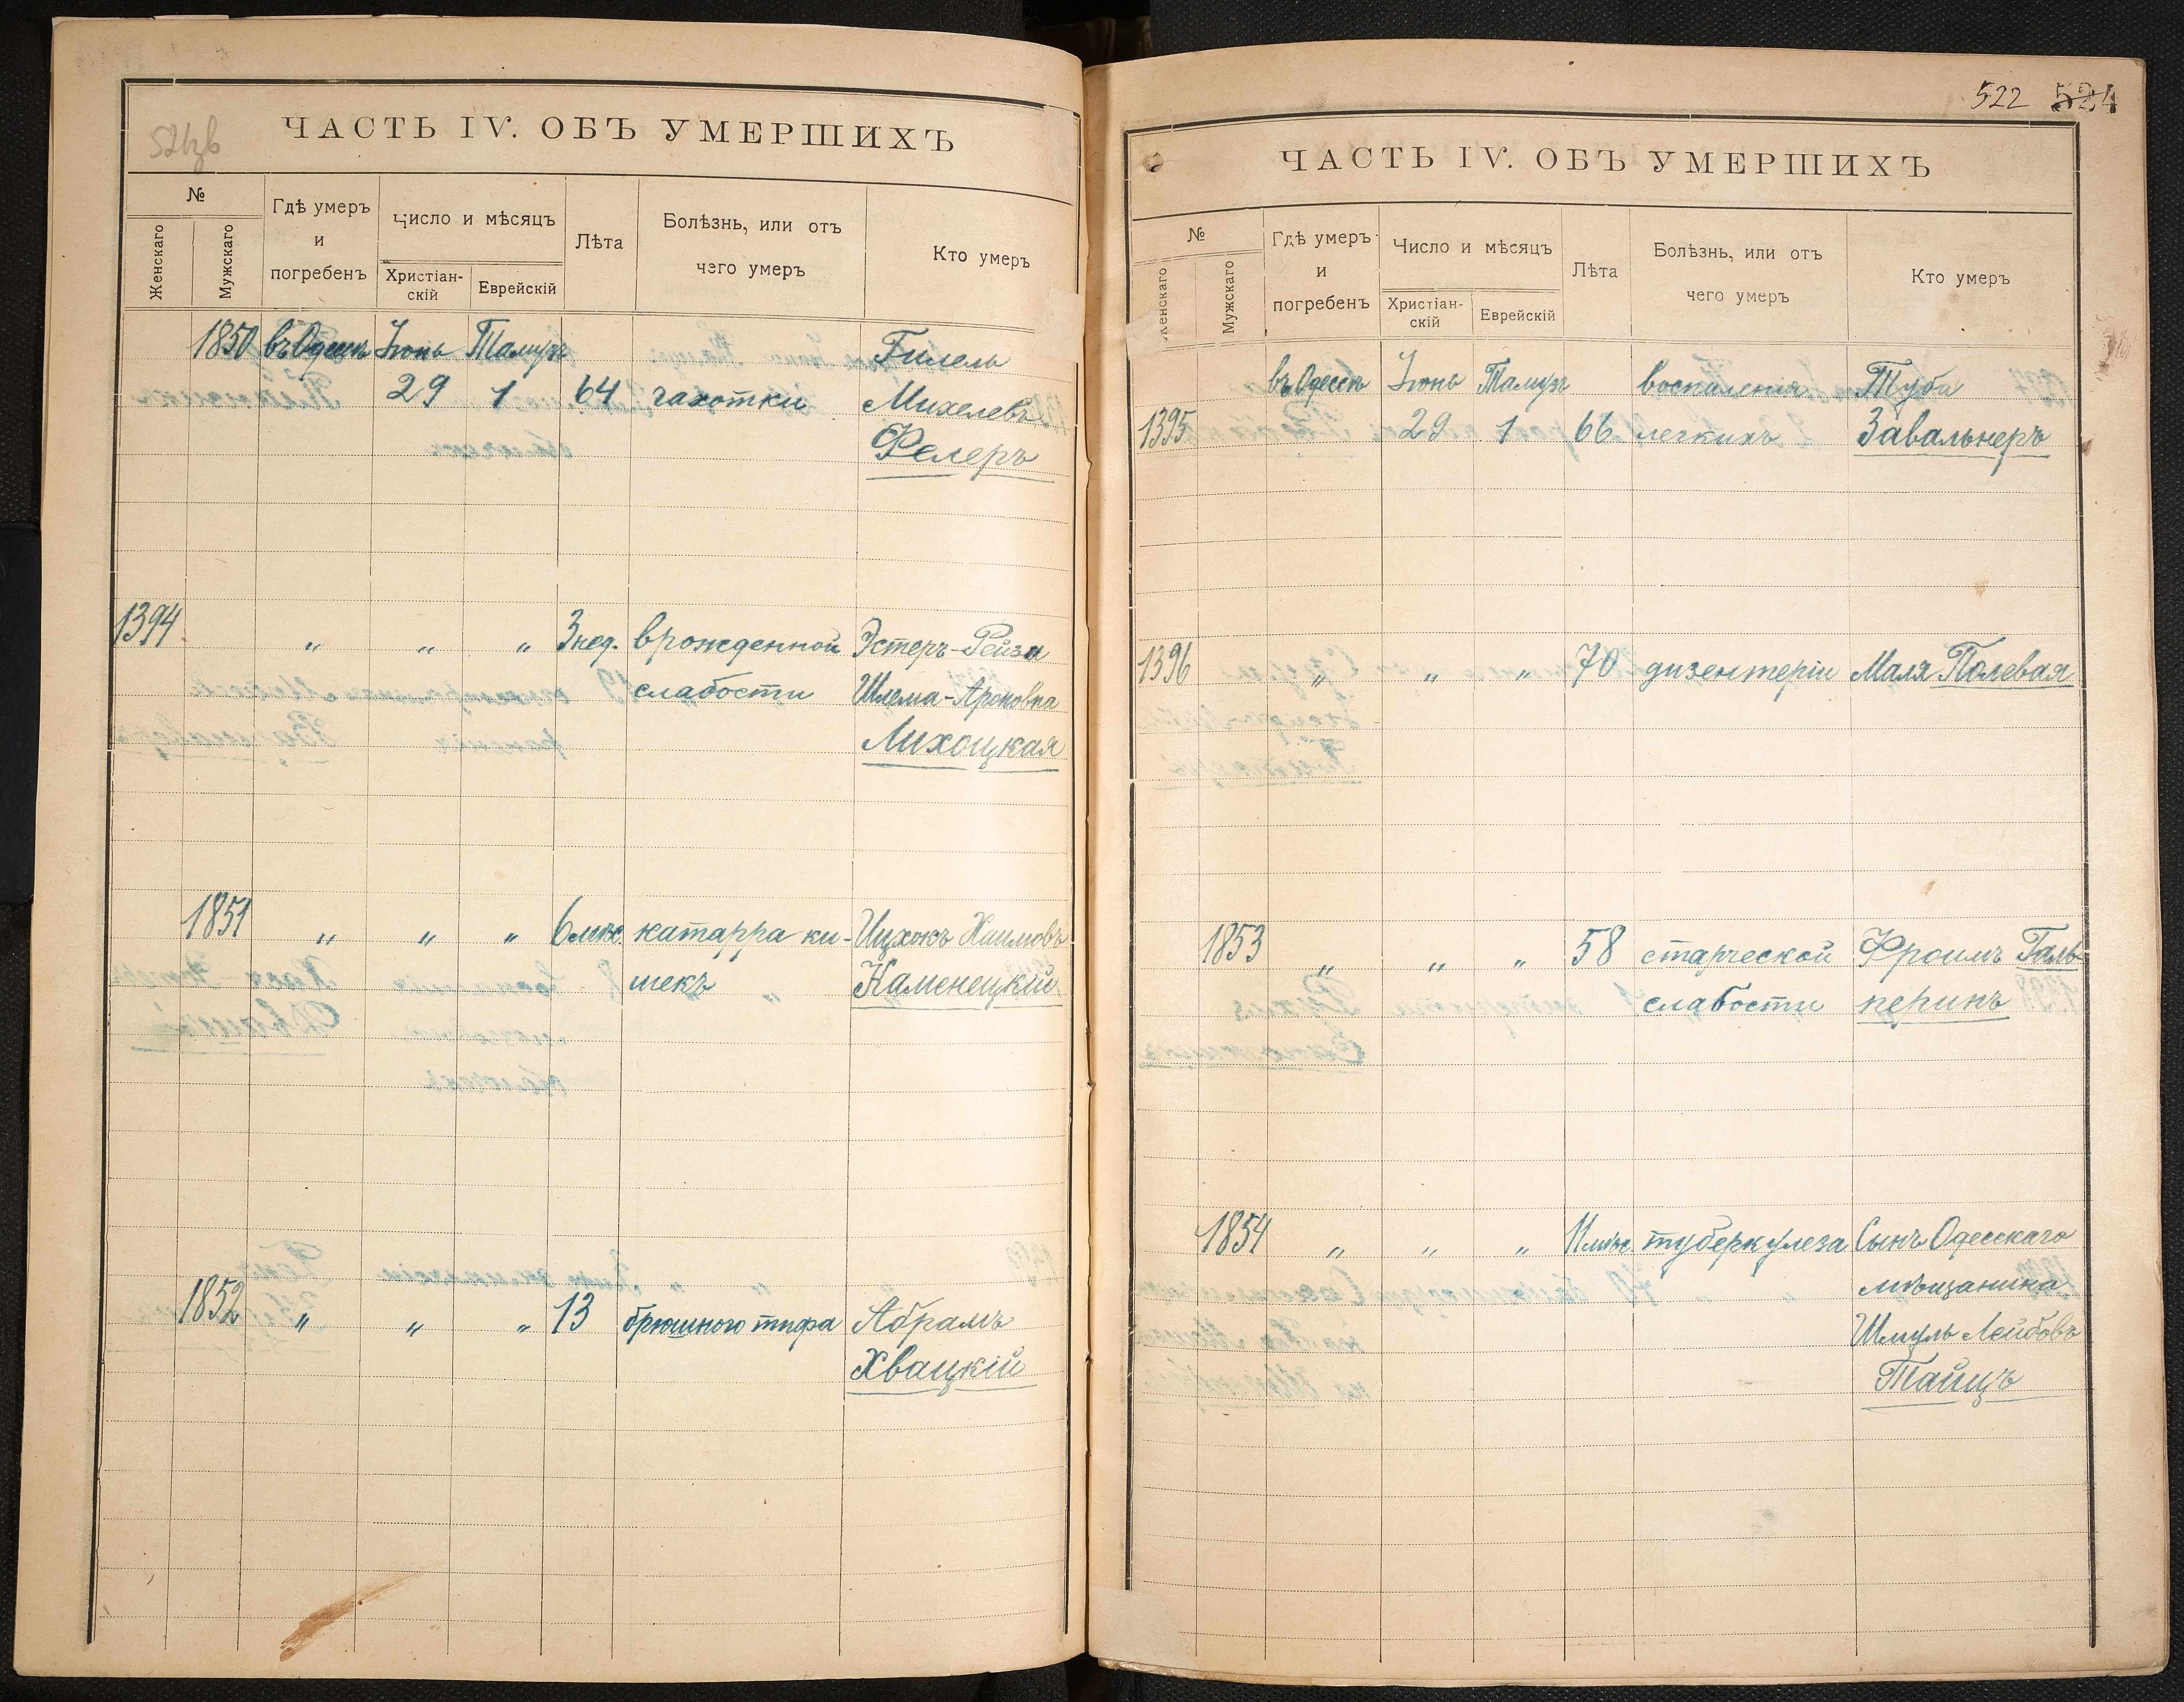 ЧАСТЬ IV. ОБЪ УМЕРШИХЪ
№
Женскаго
Мужскаго
Гдѣ умеръ
и
погребенъ
Число и мѣсяцъ
Христіан-
скій
Еврейскій
Лѣта
Болѣзнь, или отъ
чего умеръ
Кто умеръ
1850 въ Одессѣ Іюнь Тамузъ Гилель
29 1 64 чахотки Михелевъ
Фелеръ
1394 " " " 3 нед. врожденной Эстеръ-Рейза
слабости Шлема-Ароновна
Лихоцкая
1851 " " " 6 мѣс. катарра ки- Ицхокъ Хаимовъ
шекъ Каменецкій
1852 " " " 13 брюшного тифа Абрамъ
Хвацкій
522 524
ЧАСТЬ IV. ОБЪ УМЕРШИХЪ
№
Женскаго
Мужскаго
Гдѣ умеръ
и
погребенъ
Число и мѣсяцъ
Христіан-
скій
Еврейскій
Лѣта
Болѣзнь, или отъ
чего умеръ
Кто умеръ
въ Одессѣ Іюнь Тамузъ воспаленія Туба
1395 29 1 66 легкихъ Завальнеръ
1396 " " " 70 дизентеріи Маля Полевая
1853 " " " 58 старческой Фроимъ Галь-
слабости перинъ
1854 " " " 11 мѣс. туберкулеза Сынъ Одесскаго
мѣщанина
Шмуль Лейбовъ
Тайцъ